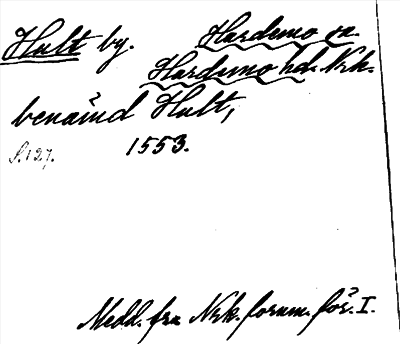 Hult by. Hardemo sn.
Hardemo hd. Nrk.
benämnd Hult,
S. 127. 1553.
Medd. fra Nrk. fornm. för. I.